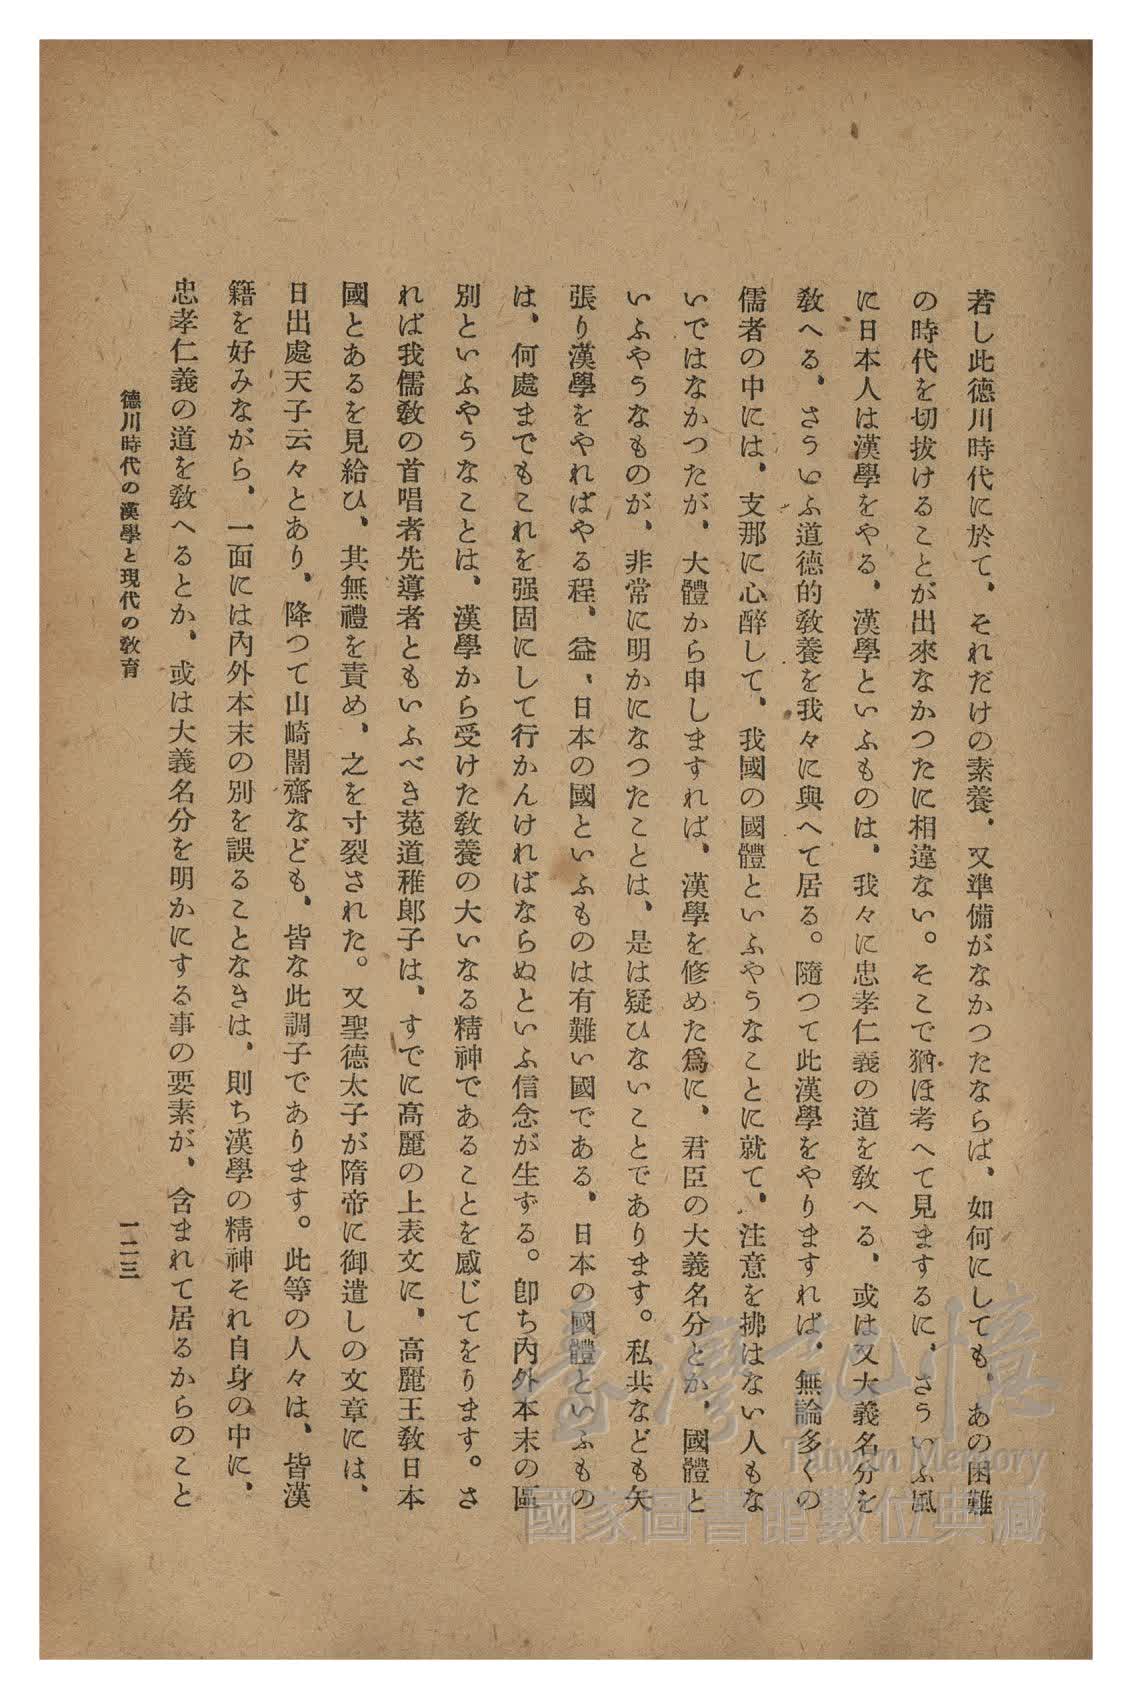 若し此德川時代に於て、それだけの素養、又準備がなかつたならば、如何にしても、あの困難
の時代を切拔けることが出來なかつたに相違ない。そこで猶ほ考へて見まするに、さういふ風
に日本人は漢學をやる、漢學といふものは、我々に忠孝仁義の道を敎へる、或は又大義名分を
敎へる、さういふ道德的敎養を我々に與へて居る。隨つて此漢學をやりますれば、無論多くの
儒者の中には、支那に心醉して、我國の國體といふやうなことに就て、注意を拂はない人もな
いではなかつたが、大體から申しますれば、漢學を修めた爲に、君臣の大義名分とか、國體と
いふやうなものが、非常に明かになつたことは、是は疑ひないことであります。私共なども矢
張り漢學をやればやる程、益、日本の國といふものは有難い國である、日本の國體といふもの
は、何處までもこれを强固にして行かんければならぬといふ信念が生ずる。卽ち內外本末の區
別といふやうなことは、漢學から受けた敎養の大いなる精神であることを感じてをります。さ
れば我儒敎の首唱者先導者ともいふべき菟道稚郞子は、すでに高麗の上表文に、高麗王敎日本
國とあるを見給ひ、其無禮を責め、之を寸裂された。又聖德太子が隋帝に御遣しの文章には、
日出處天子云々とあり、降つて山崎闇齋なども、皆な此調子であります。此等の人々は、皆漢
籍を好みながら、一面には內外本末の別を誤ることなきは、則ち漢學の精神それ自身の中に、
忠孝仁義の道を敎へるとか、或は大義名分を明かにする事の要素が、含まれて居るからのこと
德川時代の漢學と現代の敎育
一二三
臺灣記憶
Taiwan Memory
國家圖書館數位典藏